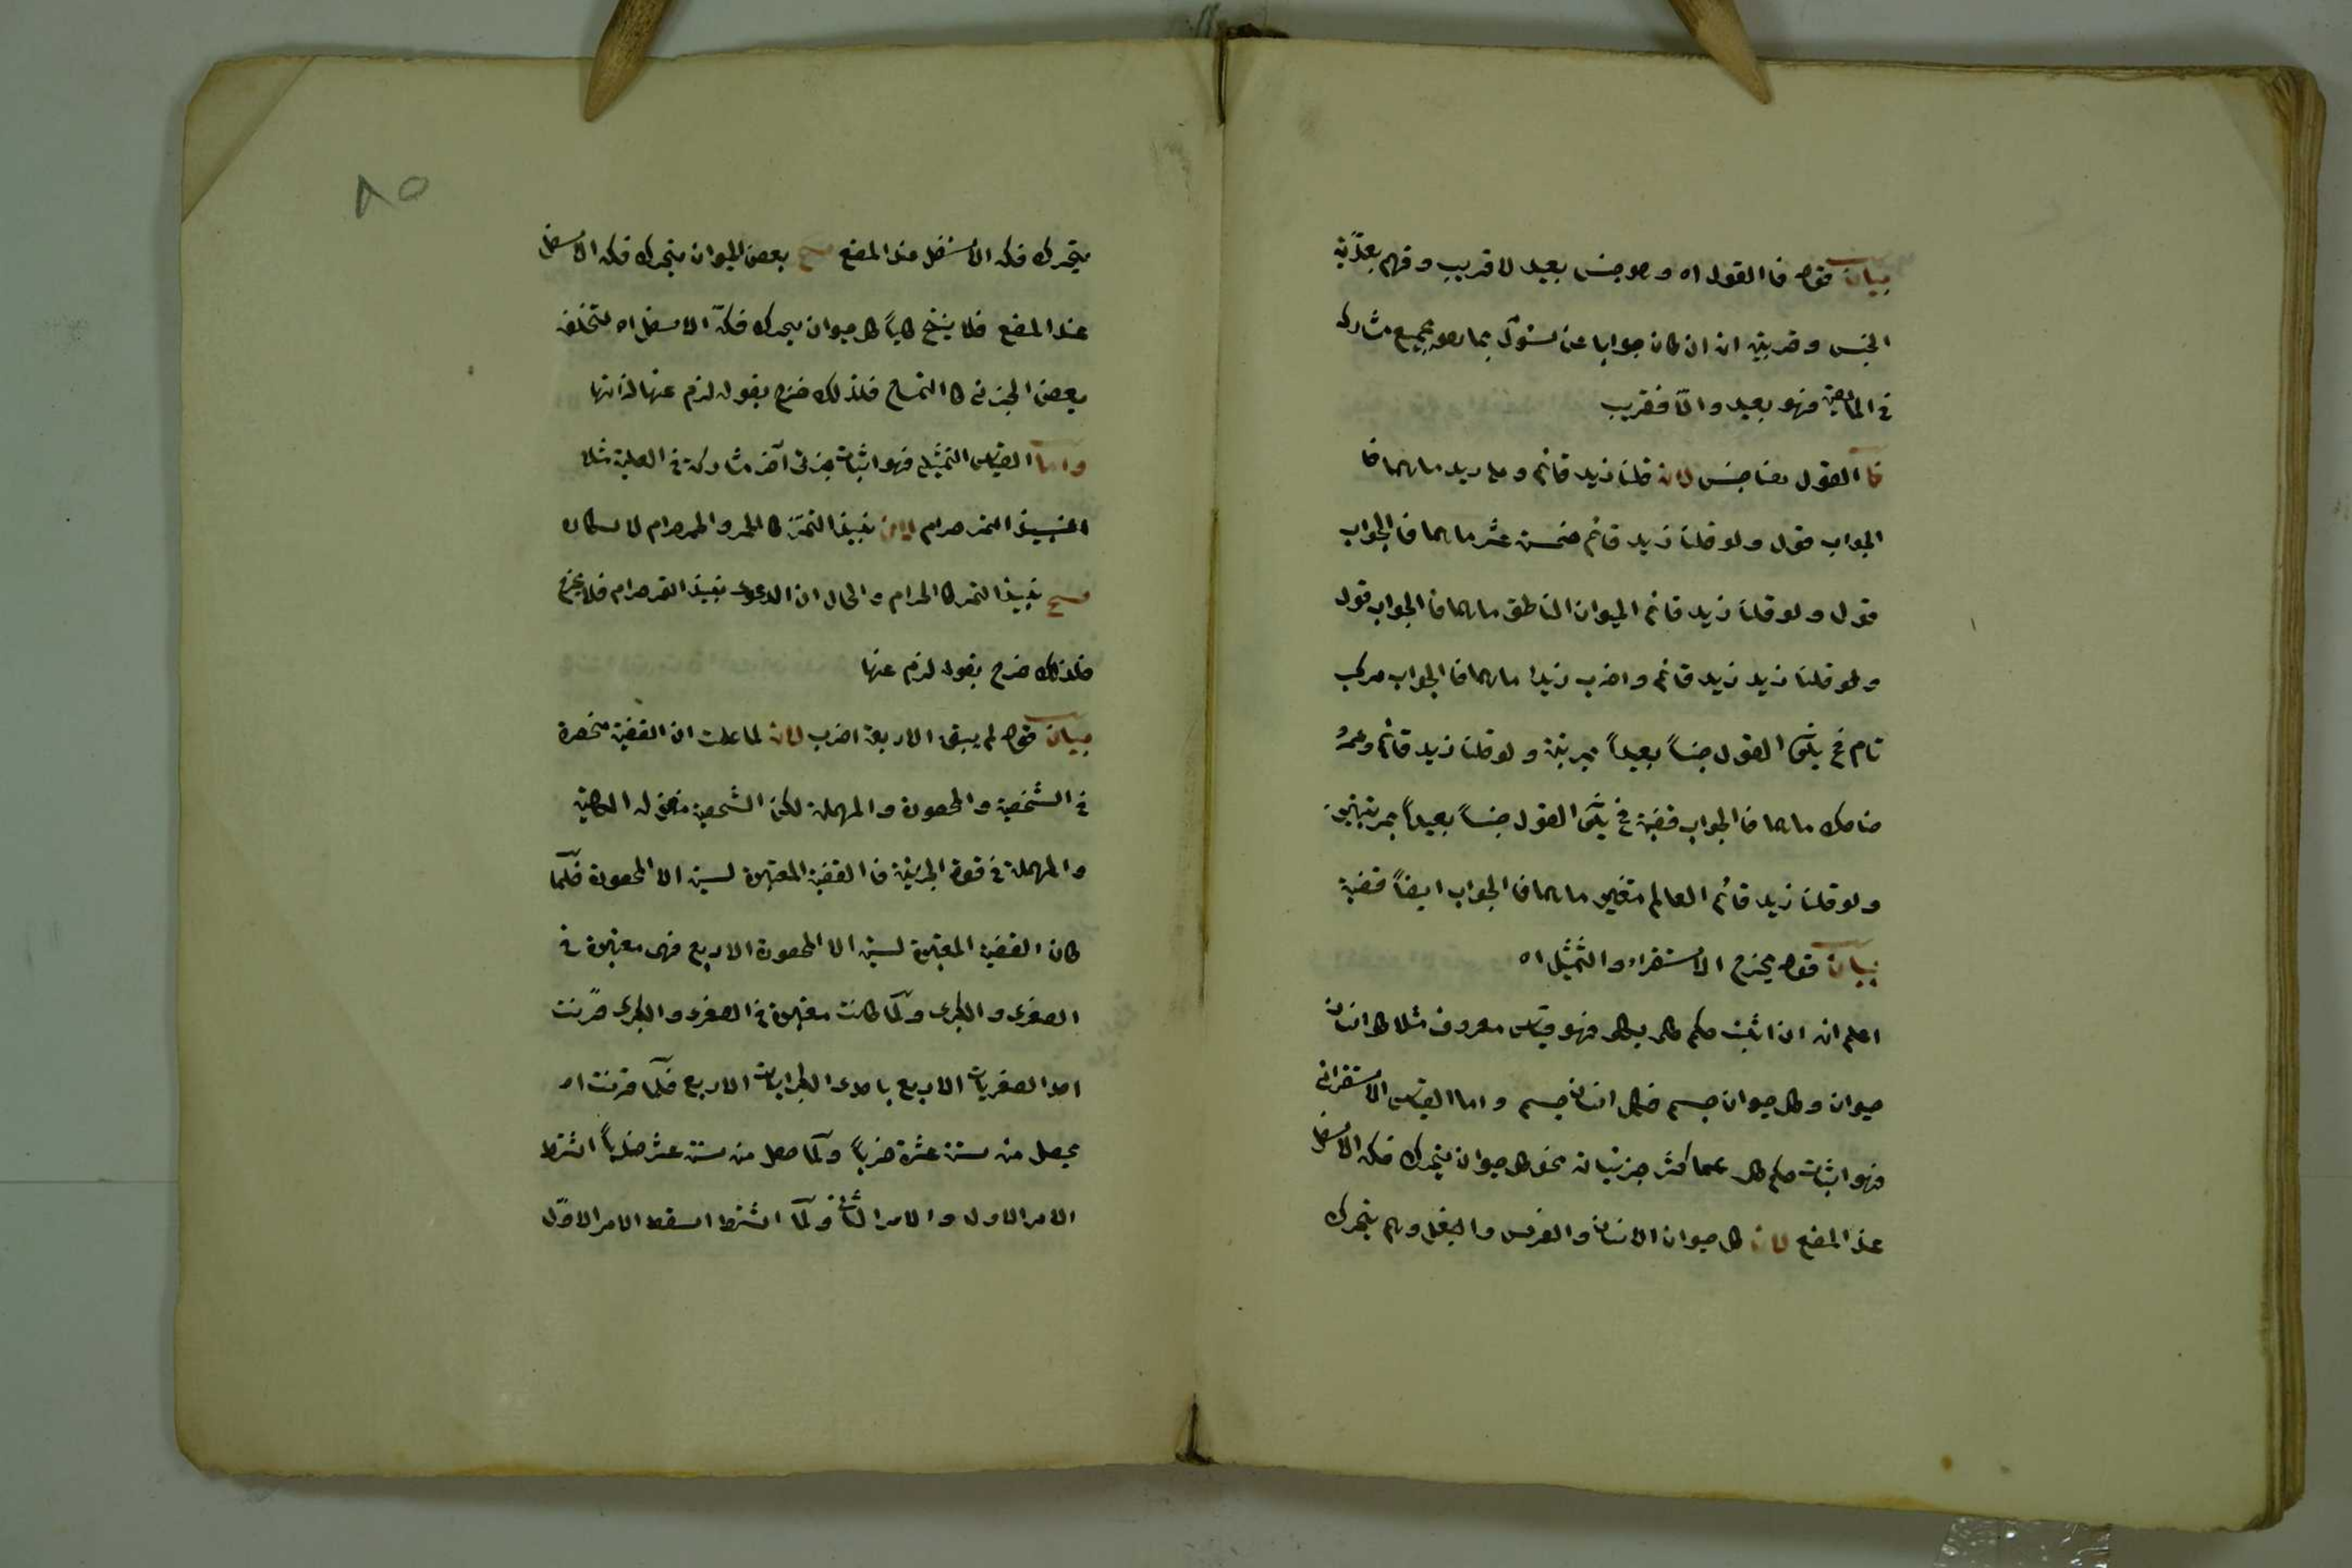 بيان قوله فا القول اه وهو جنس بعيد لا قريب وفهم بعديّة
الجنس وقربيته ان ان كان جوابا عن لسؤل بما هو بجميع مشاركه
في الماهية فهو بعيد والّا فقريب
فا القول هنا جنس لان قلنا زيد قائم وما زيد ما هما فا
الجواب قول ولو قلنا زيد قائم خمسة عشر ما هما فا الجواب
قول ولو قلنا زيد قائم الحيوان الناطق ما هما فا الجواب قول
ولو قلنا زيد زيد قائم واضرب زيدا ما هما فا الجواب مركب
تام فح يكون القول جنساً بعيداً بمرتبة ولو قلنا زيد قائم وعمرو
ضاحك ما هما فا الجواب قضية فح يكون القول جنساً بعيداً بمرتبتين
ولو قلنا زيد قائم العالم متغير ما هما فا الجواب ايضاً قضية
بيان قوله يخرج الأستقراء والتمثيل اه
اعلم ان ان اثبت حكم كلي بكلي فهو قياس معروف مثلا كل انسان
حيوان وكل حيوان جسم فكل انسان جسم واما القياس الأستقرائي
فهو اثبات حكم كلي بما كثر جزئيات نحو كل حيوان يتحرك فكه الأسفل
عند المضغ لان كل حيوان الانسان والفرس والبغل وهم يتحرك
يتحرك فكه الأسفل عند المضغ بعض الحيوان يتحرك فكه الأسفل
عند المضغ فلا ينتج كلياً كل حيوان يتحرك فكّه الاسفل اه لتخلف
بعض الجزئي كا التمساح فلذلك خرج بقوله لزم عنها لذاتها
واما القياس التمثيلي فهو اثبات جزئي آخر مشاركة في العلية مثلا
النبيذ التمر حرام لان نبيذ التمر كا الخمر والخمر حرام لاسكاره
نبيذ التمر كا الحرام والحال ان الدعوى نبيذ التمر حرام فلا يخرج
فلذلك خرج بقوله لزم عنها
بيان قوله لم يبق الا اربعة اضرب لان لما علمت ان القضية منحصرة
في الشخصية والمحصورة والمهملة لكن الشخصية منزلة الكلية
والمهملة في قوة الجزئية فا القضية المعتبرة ليست الا المحصورة فكلّما
كان القضية المعتبرة ليست الا المحصورة الاربع فهي معتبرة في
الصغرى والكبرى وكلّما كانت معتبرة في الصغرى والكبرى ضربت
احد الصغريات الاربع باحدى الكبرايات الاربع فكلّما ضربت اه
يحصل من ستة عشرة ضرباً وكلّما حصل من ستة عشر ضرباً اشترط
الامر الاول والامر الثاني وكلّما اشترط اسقط الامر الاوّل